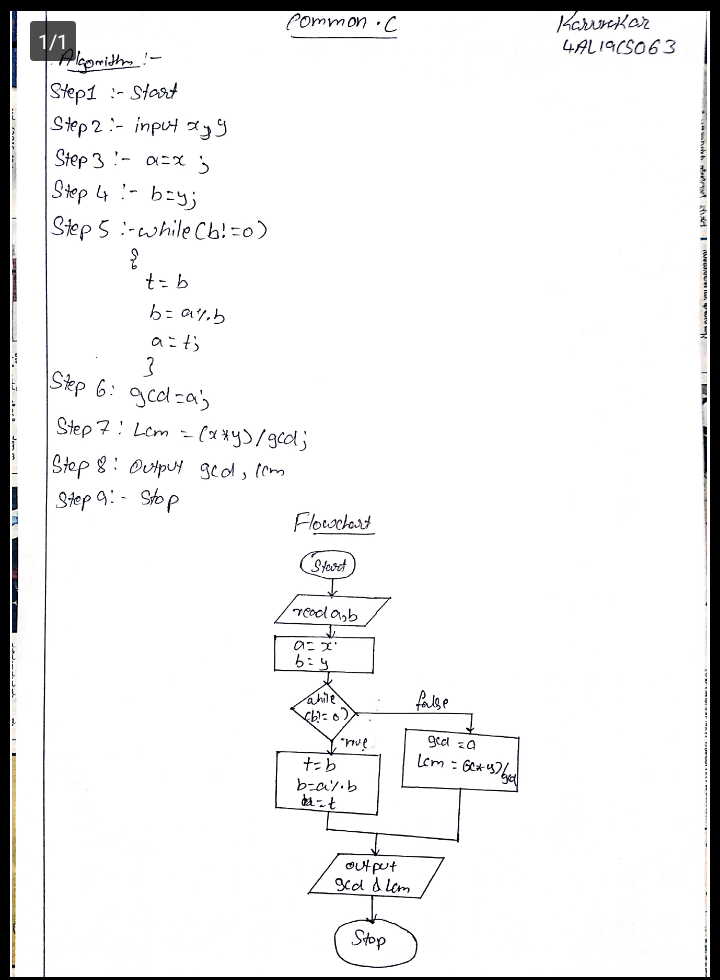 common.c
Karunakar
4AL19CS063
1/1
Algorithm :-
Step1 :- Start
Step 2 :- input x, y
Step 3 :- a=x ;
Step 4 :- b=y;
Step 5 :- while(b!=0)
{
t=b
b=a%b
a=t;
}
Step 6: gcd=a;
Step 7: Lcm = (x*y)/gcd;
Step 8: Output gcd, lcm
Step 9:- Stop
Flowchart
Start
read a,b
a= x
b= y
while
(b!=0)
false
true
gcd =a
Lcm = (x*y)/gcd
t=b
b=a%b
a=t
output
gcd & Lcm
Stop